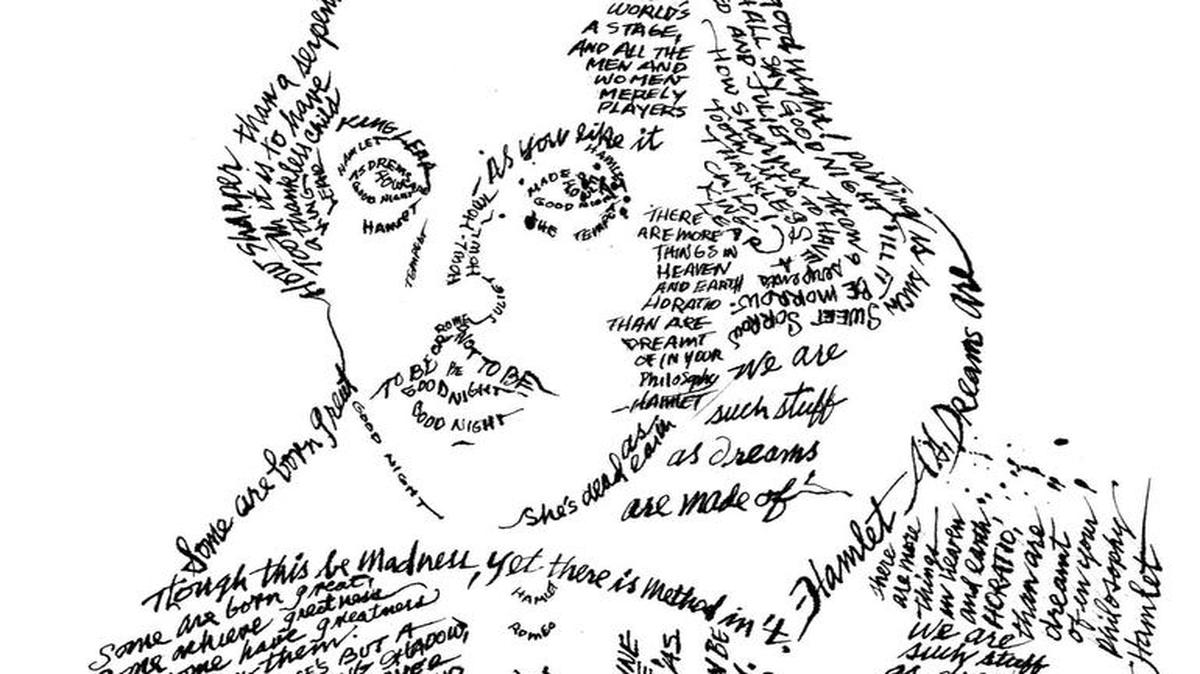 WORLD'S
A STAGE,
AND ALL THE
MEN AND
WOMEN
MERELY
PLAYERS
As you like it
How sharper than a serpent
it is to have
thankless child
KING LEAR
HAMLET
AS DREMS
GOOD NIGHT
HAMLET
TEMPEST
MADE
TO
GOOD NIGHT
HAMLET
THE TEMPEST
HOWL-HOWL-HOWL
JULIET
ROMEO
TO BE OR NOT TO BE
BE
GOOD NIGHT
GOOD NIGHT
GOOD NIGHT
AND JULIET
HALL SAY GOOD NIGHT
parting is such
SWEET SORROW
TILL IT BE MORROW
HOW SHARPER
THANKLESS
CHILD!
TO HAVE A
THAN A
serpents
THERE
ARE MORE
THINGS IN
HEAVEN
AND EARTH
HORATIO
THAN ARE
DREAMT
OF IN YOUR
Philosophy
-HAMLET
we are
such stuff
as dreams
are made of
She's dead as
earth
Some are born great
Hamlet
As Dreams are
Tough this be Madness, yet there is Method in it.
Some are born great,
Some achieve greatness
some have greatness
them.
BUT A
SHADOW,
HAMLET
ROMEO
AS
BE
there
are more
things
in heaven
and earth
HORATIO,
than are
dreamt
of in your
philosophy
Hamlet
we are
such stuff